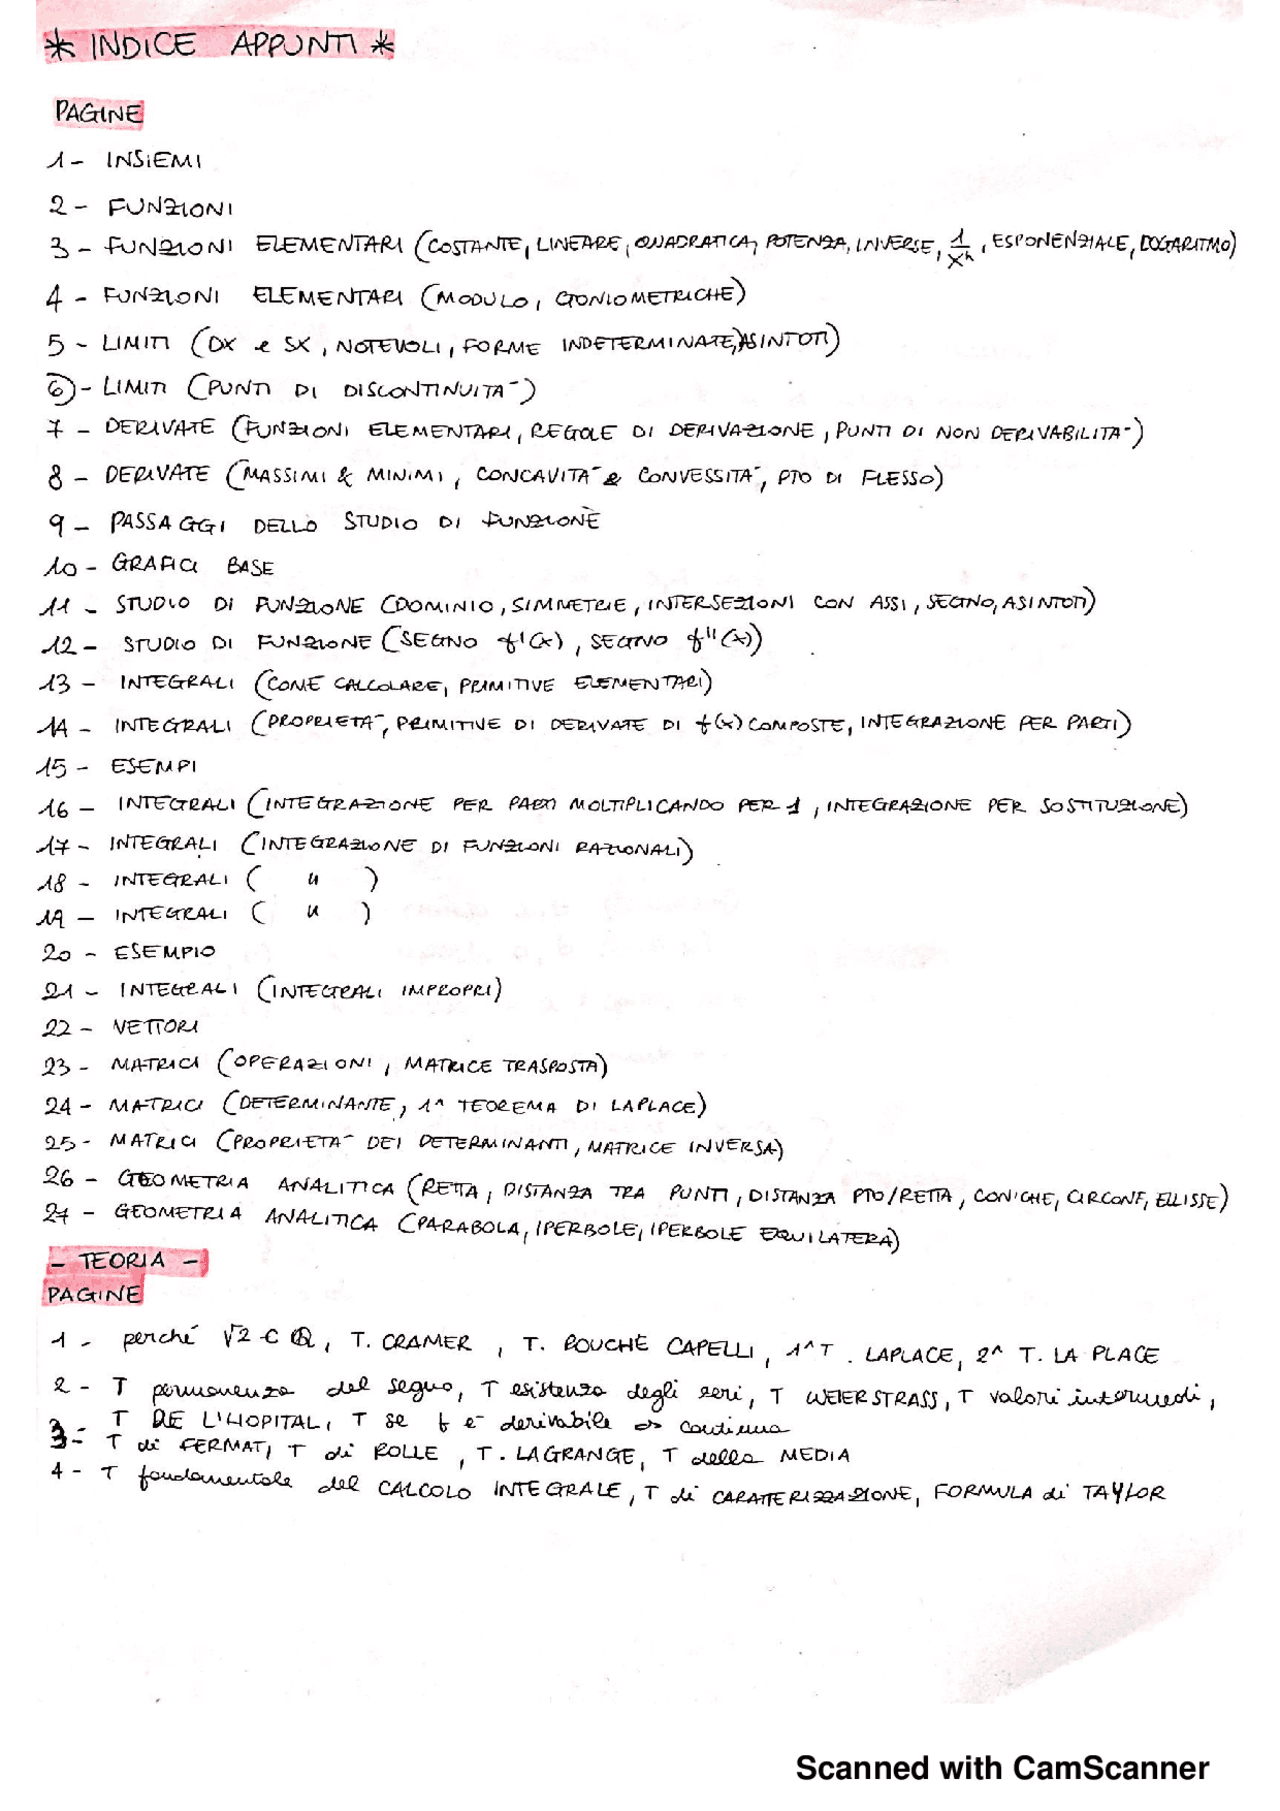 * INDICE APPUNTI *
PAGINE
1 - INSIEMI
2 - FUNZIONI
3 - FUNZIONI ELEMENTARI (COSTANTE, LINEARE, QUADRATICA, POTENZA, INVERSE, 1/xⁿ, ESPONENZIALE, LOGARITMO)
4 - FUNZIONI ELEMENTARI (MODULO, GONIOMETRICHE)
5 - LIMITI (DX e SX, NOTEVOLI, FORME INDETERMINATE, ASINTOTI)
6 - LIMITI (PUNTI DI DISCONTINUITA-)
7 - DERIVATE (FUNZIONI ELEMENTARI, REGOLE DI DERIVAZIONE, PUNTI DI NON DERIVABILITA-)
8 - DERIVATE (MASSIMI & MINIMI, CONCAVITA- e CONVESSITA-, PTO DI FLESSO)
9 - PASSAGGI DELLO STUDIO DI FUNZIONE
10 - GRAFICI BASE
11 - STUDIO DI FUNZIONE (DOMINIO, SIMMETRIE, INTERSEZIONI CON ASSI, SEGNO, ASINTOTI)
12 - STUDIO DI FUNZIONE (SEGNO f'(x), SEGNO f''(x))
13 - INTEGRALI (COME CALCOLARE, PRIMITIVE ELEMENTARI)
14 - INTEGRALI (PROPRIETA-, PRIMITIVE DI DERIVATE DI f(x) COMPOSTE, INTEGRAZIONE PER PARTI)
15 - ESEMPI
16 - INTEGRALI (INTEGRAZIONE PER PARTI MOLTIPLICANDO PER 1, INTEGRAZIONE PER SOSTITUZIONE)
17 - INTEGRALI (INTEGRAZIONE DI FUNZIONI RAZIONALI)
18 - INTEGRALI ( " )
19 - INTEGRALI ( " )
20 - ESEMPIO
21 - INTEGRALI (INTEGRALI IMPROPRI)
22 - VETTORI
23 - MATRICI (OPERAZIONI, MATRICE TRASPOSTA)
24 - MATRICI (DETERMINANTE, 1^ TEOREMA DI LAPLACE)
25 - MATRICI (PROPRIETA- DEI DETERMINANTI, MATRICE INVERSA)
26 - GEOMETRIA ANALITICA (RETTA, DISTANZA TRA PUNTI, DISTANZA PTO/RETTA, CONICHE, CIRCONF, ELLISSE)
27 - GEOMETRIA ANALITICA (PARABOLA, IPERBOLE, IPERBOLE EQUILATERA)
- TEORIA -
PAGINE
1 - perché √2 ∈ ℚ, T. CRAMER, T. ROUCHE CAPELLI, 1^ T. LAPLACE, 2^ T. LA PLACE
2 - T permanenza del segno, T esistenza degli zeri, T WEIERSTRASS, T valori intermedi,
T DE L'HOPITAL, T se f e- derivabile => continua
3 - T di FERMAT, T di ROLLE, T. LAGRANGE, T della MEDIA
4 - T fondamentale del CALCOLO INTEGRALE, T di CARATTERIZZAZIONE, FORMULA di TAYLOR
Scanned with CamScanner